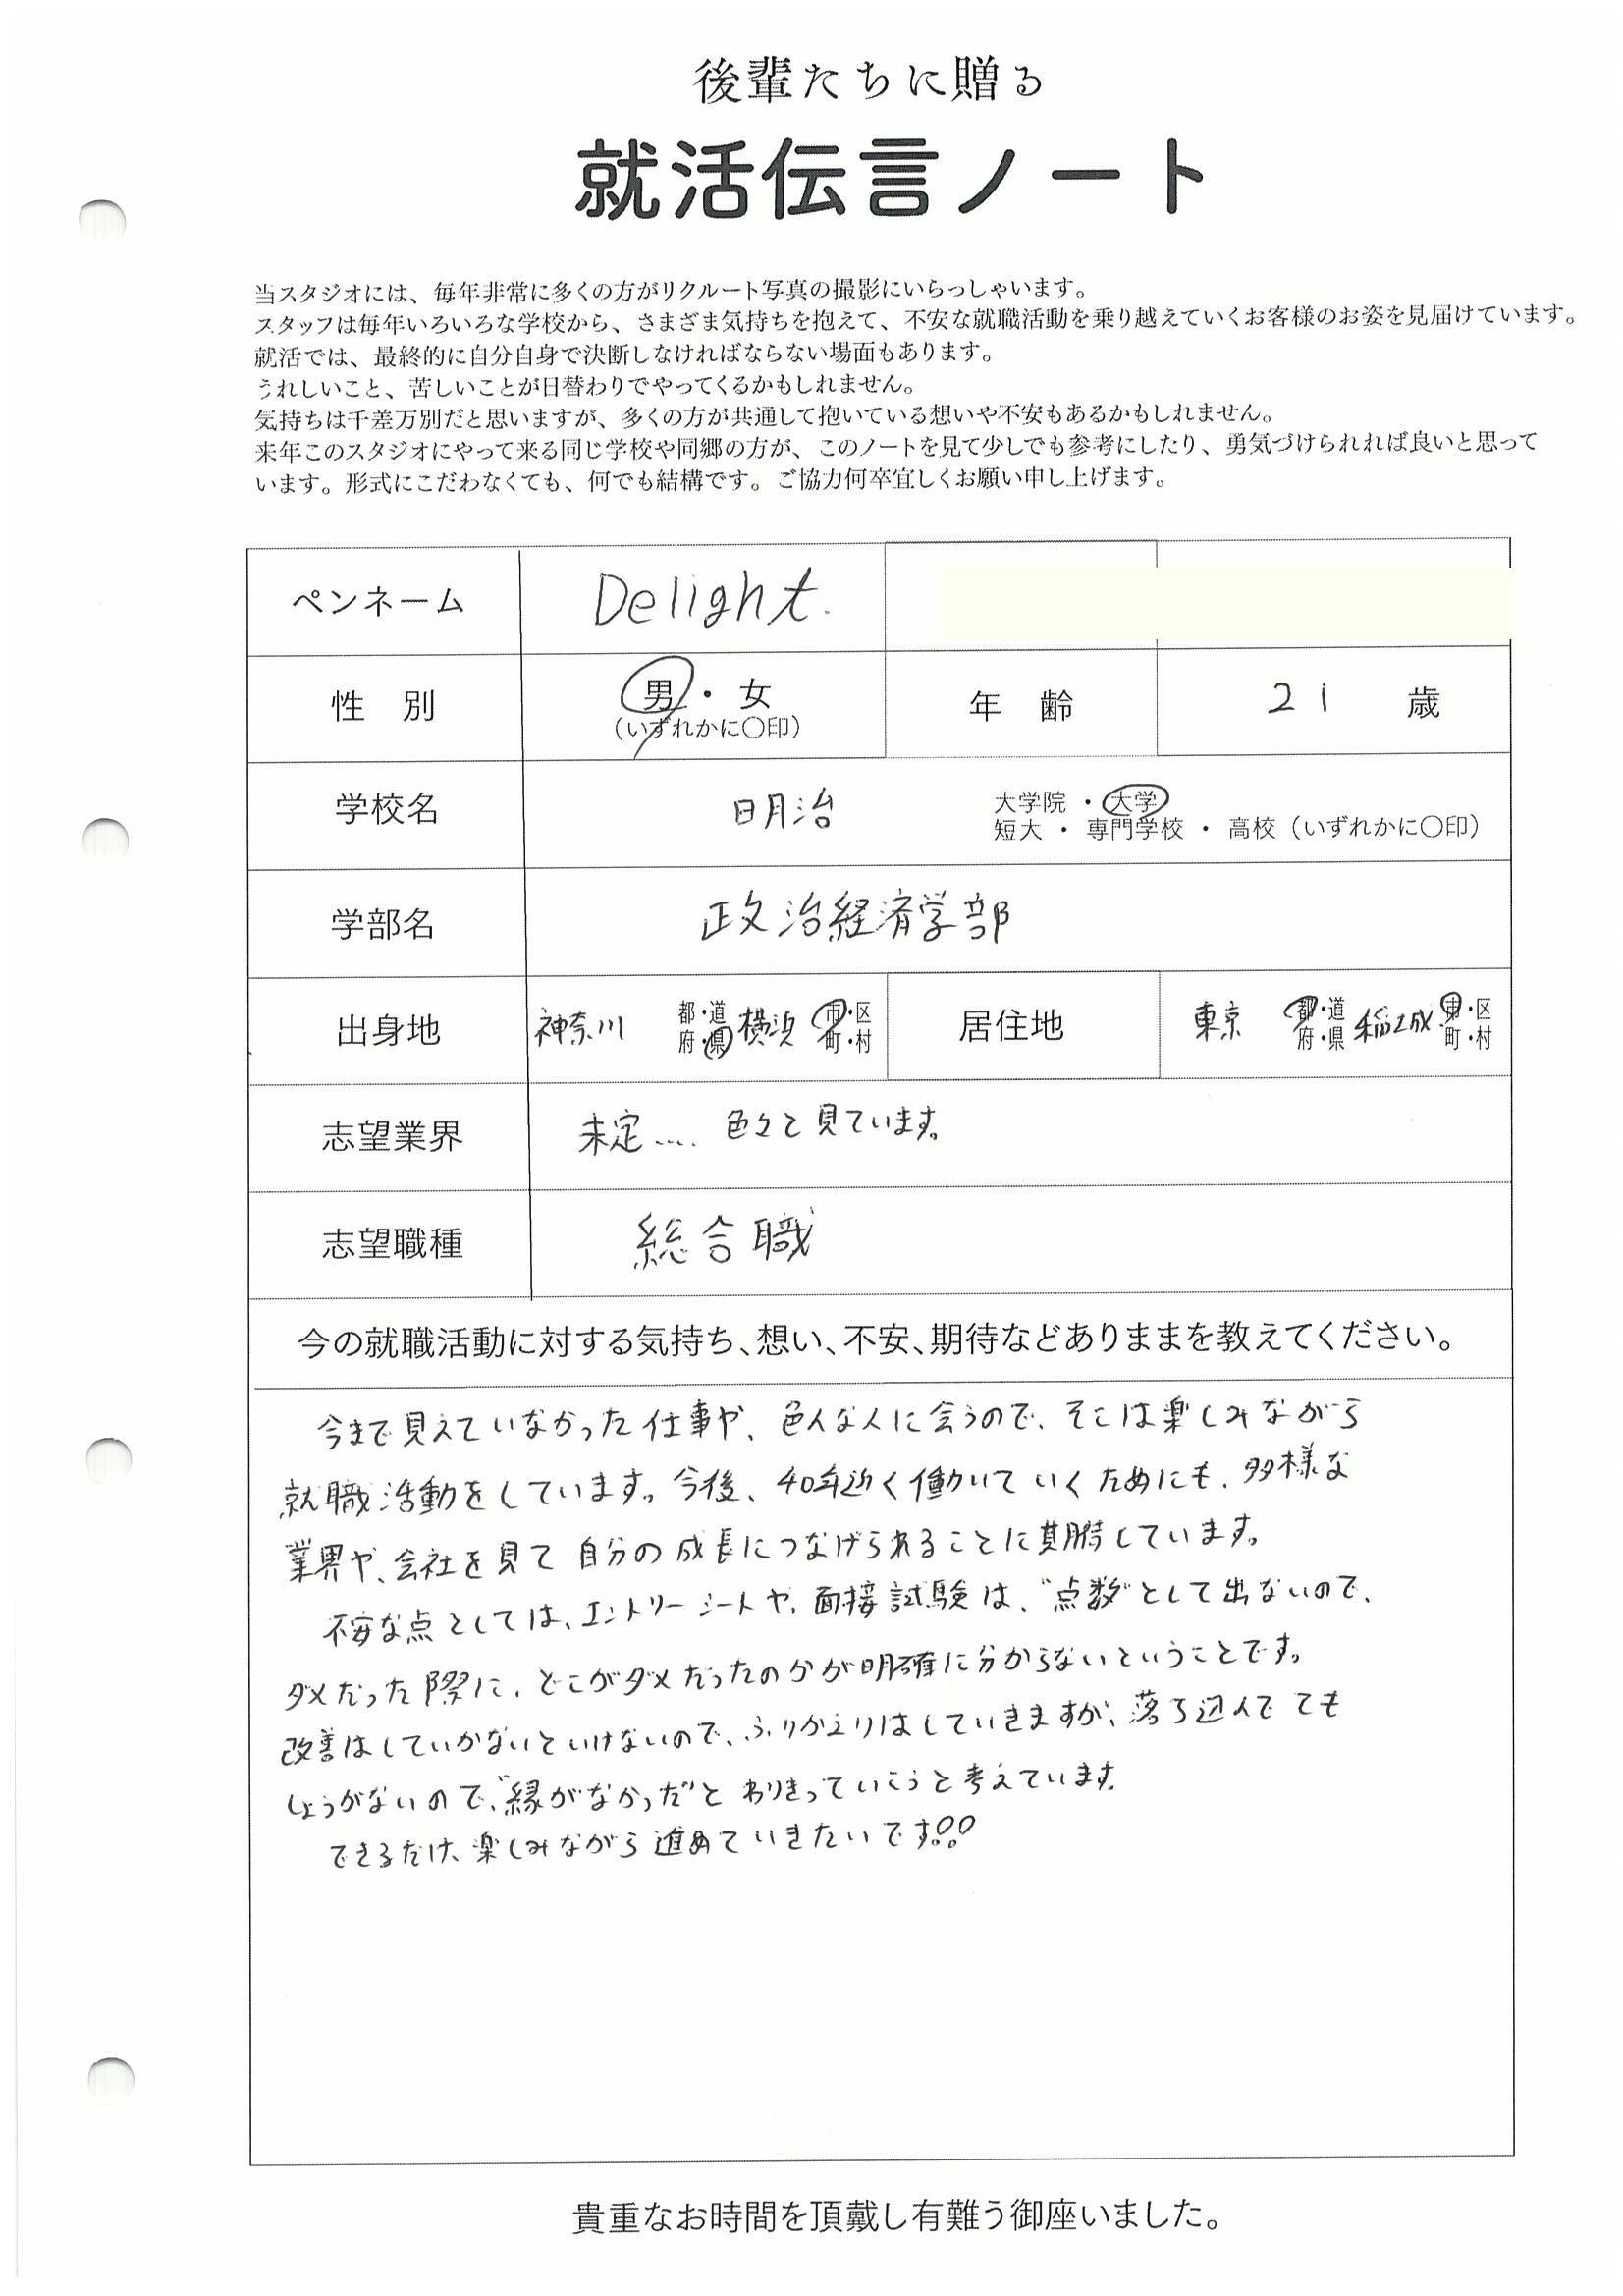 後輩たちに贈る
就活伝言ノート
当スタジオには、毎年非常に多くの方がリクルート写真の撮影にいらっしゃいます。
スタッフは毎年いろいろな学校から、さまざま気持ちを抱えて、不安な就職活動を乗り越えていくお客様のお姿を見届けています。
就活では、最終的に自分自身で決断しなければならない場面もあります。
うれしいこと、苦しいことが日替わりでやってくるかもしれません。
気持ちは千差万別だと思いますが、多くの方が共通して抱いている想いや不安もあるかもしれません。
来年このスタジオにやって来る同じ学校や同郷の方が、このノートを見て少しでも参考にしたり、勇気づけられれば良いと思って
います。形式にこだわなくても、何でも結構です。ご協力何卒宜しくお願い申し上げます。
ペンネーム Delight.
性 別 男・女 (いずれかに〇印) 年 齢 21 歳
学校名 明治 大学院・大学
短大・専門学校・高校(いずれかに〇印)
学部名 政治経済学部
出身地 神奈川 都・道 府・県 横浜 市・区 町・村 居住地 東京 都・道 府・県 稲城 市・区 町・村
志望業界 未定.... 色々と見ています。
志望職種 総合職
今の就職活動に対する気持ち、想い、不安、期待などありままを教えてください。
今まで見えていなかった仕事や、色んな人に会うので、そこは楽しみながら
就職活動をしています。今後、40年近く働いていくためにも、多様な
業界や、会社を見て自分の成長につなげられることに期待しています。
不安な点としては、エントリーシートや、面接試験は、"点数"として出ないので、
ダメだった際に、どこがダメだったのかが明確に分からないということです。
改善はしていかないといけないので、ふりかえりはしていきますが、落ち込んでても
しょうがないので、"縁がなかった"とわりきっていこうと考えています。
できるだけ、楽しみながら進めていきたいです!!
貴重なお時間を頂戴し有難う御座いました。